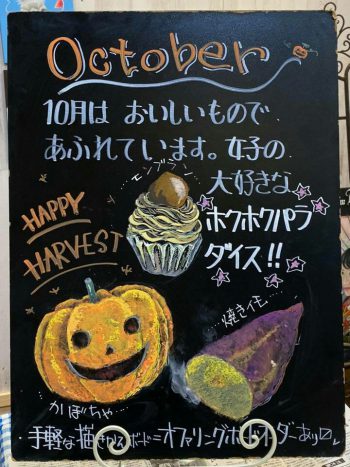 October
10月は おいしいもので
あふれています。女子の
大好きな
ホクホクパラ
ダイス!!
モンブラン
HAPPY
HARVEST
焼きイモ...
かぼちゃ
手軽な描き
ボード=オファリングボード
あり〼